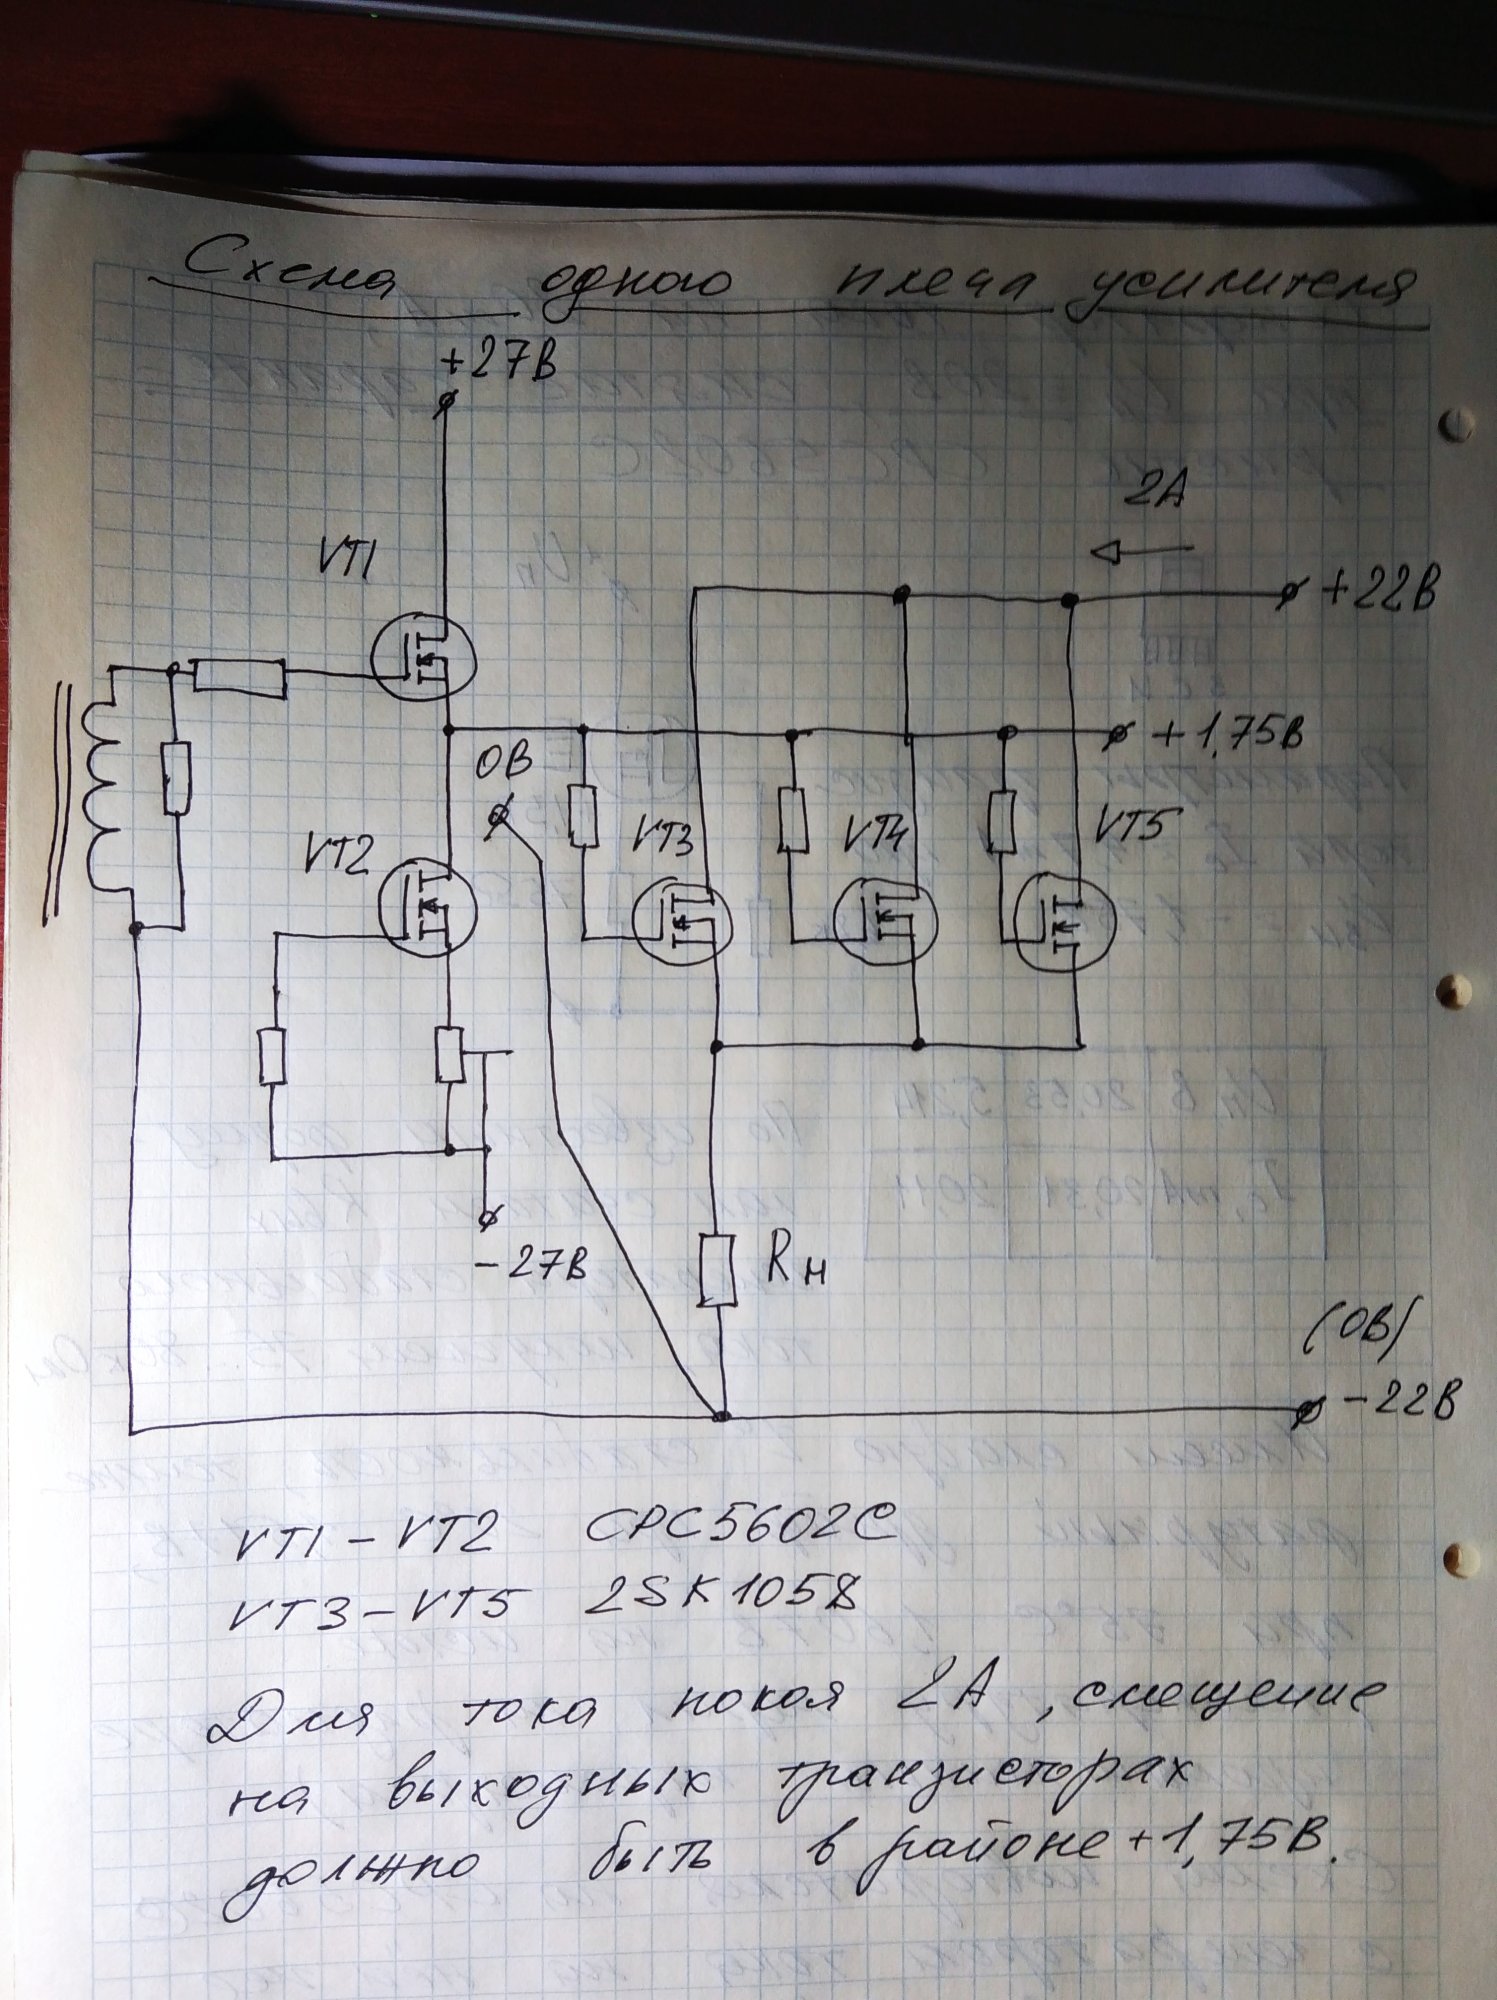 Схема одного плеча усилителя
+27В
2А
VT1
+22В
+1,75В
0В
VT2
VT3
VT4
VT5
-27В
Rн
(0В)
-22В
VT1-VT2 CPC5602C
VT3-VT5 2SK1058
Для тока покоя 2А, смещение
на выходных транзисторах
должно быть в районе +1,75В.